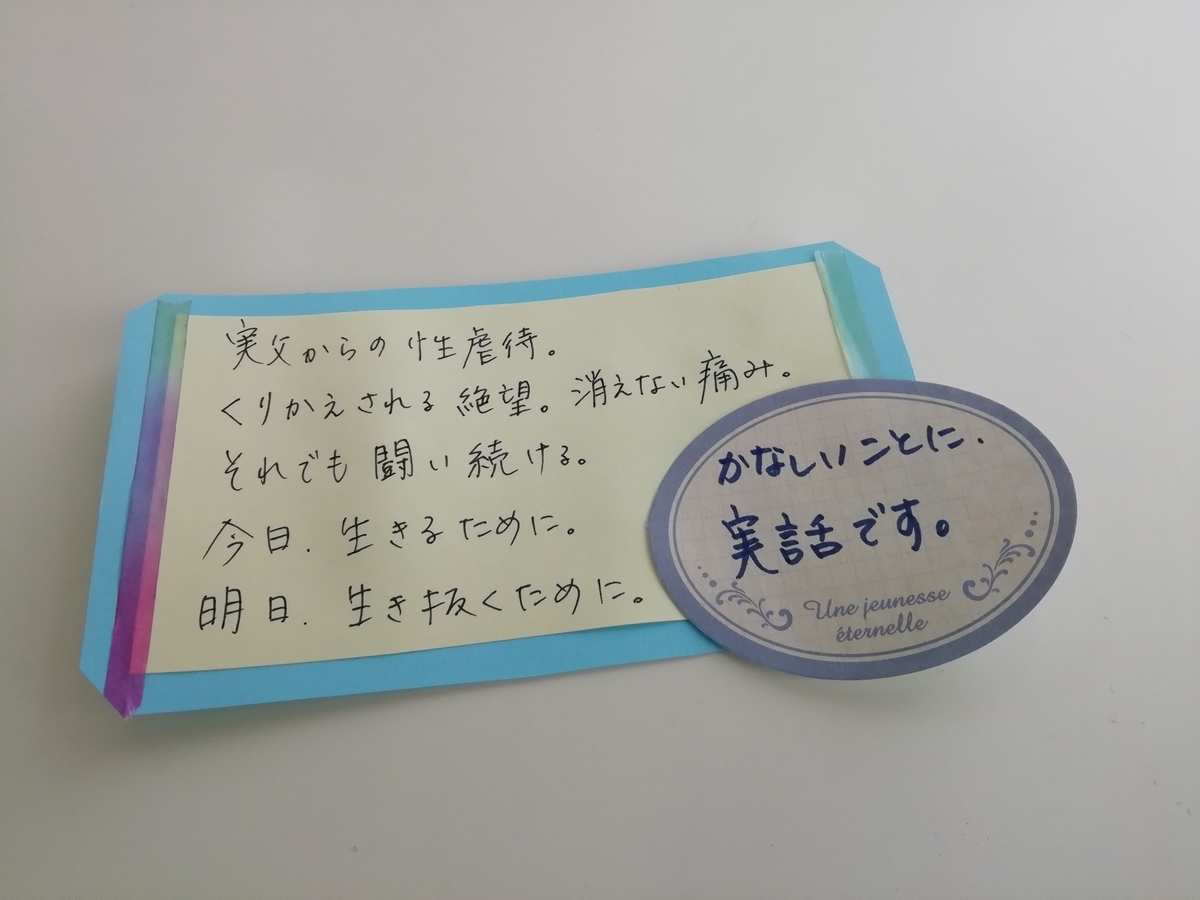 実父からの性虐待。
くりかえされる絶望。消えない痛み。
それでも闘い続ける。
今日、生きるために。
明日、生き抜くために。
かなしいことに、
実話です。
Une jeunesse
éternelle